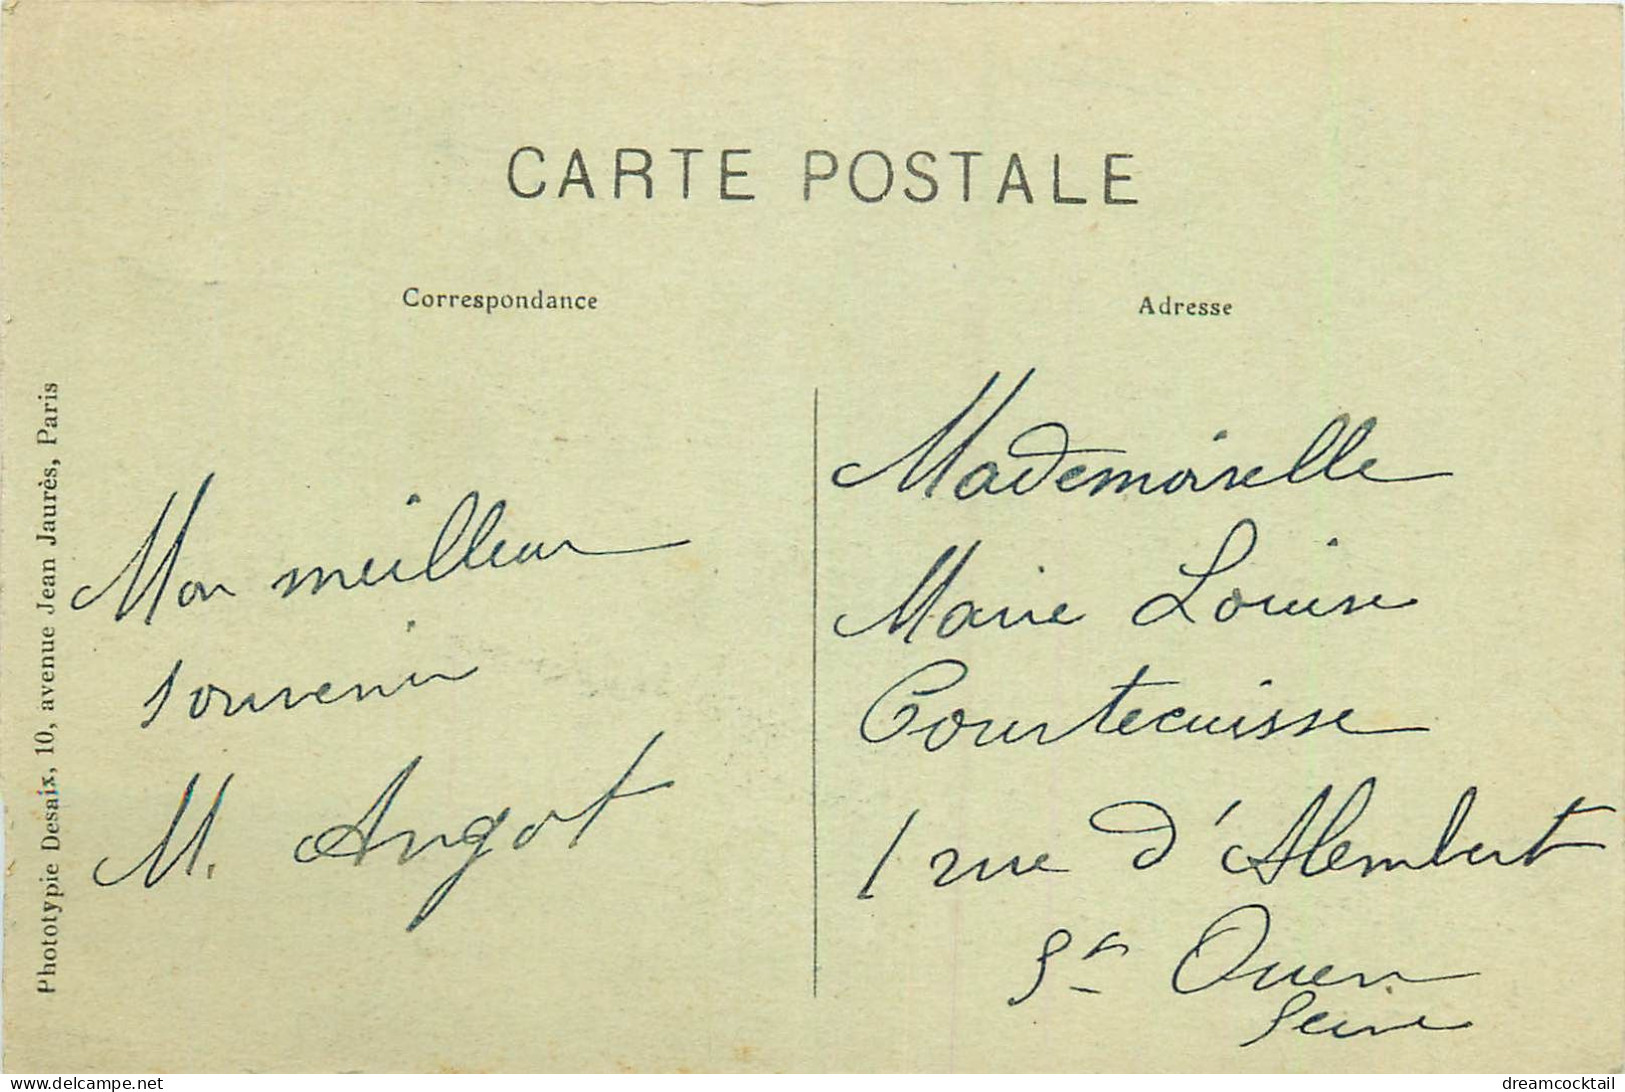 CARTE POSTALE
Correspondance
Adresse
Phototypie Desaix, 10, avenue Jean Jaurès, Paris
Mon meilleur
souvenir
M. Angot
Mademoiselle
Marie Louise
Courtecuisse
1 rue d'Alembert
St Ouen
Seine
www.delcampe.net
dreamcocktail